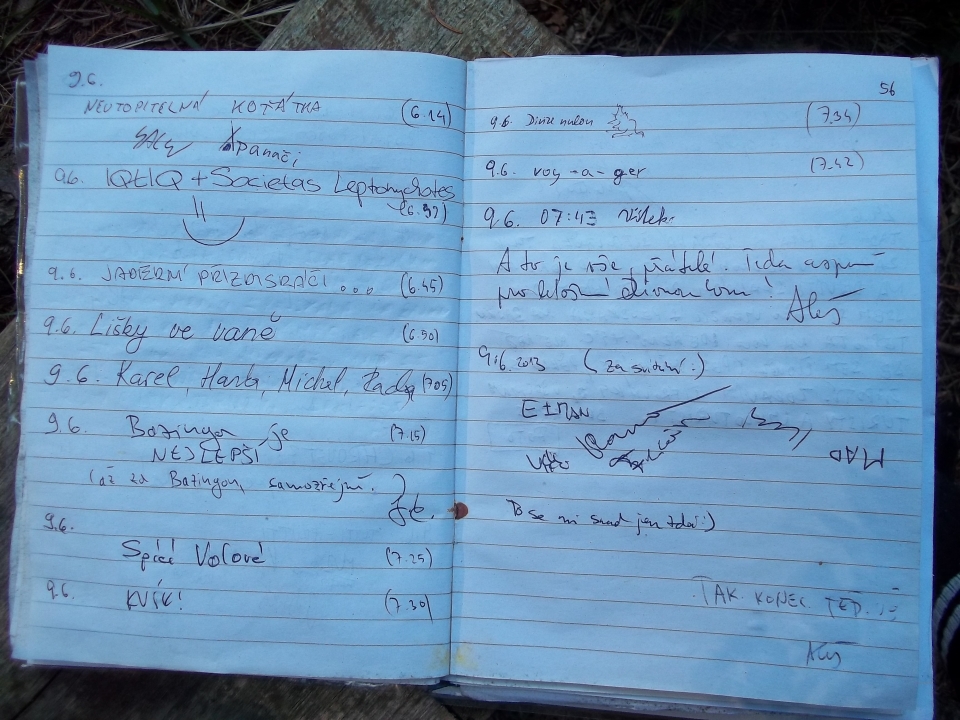 9.6.
NEUTOPITELNÁ KOŤÁTKA (6.14)
9.6. IQtIQ + Societas Leptohychotes
(6.37)
9.6. JADERNÍ PŘIZDISRAČI... (6.45)
9.6. Lišky ve vaně (6.50)
9.6. Karel, Hanka, Michal, Radka (705)
9.6. Bazinga je (7.15)
NEJLEPŠÍ
(až za Bazingou, samozřejmě.)
9.6.
Spící Volové (7.25)
9.6. KVÍK! (7.30)
56
9.6. (7.34)
9.6. voy-a-ger (7.42)
9.6. 07:43 Výslek
A to je vše, přátelé. Teda aspoň
pro letošní
Aleš
9.6.2013 (za svítání.)
MAO
To se mi snad jen zdá :)
TAK. KONEC TEĎ.
Aleš